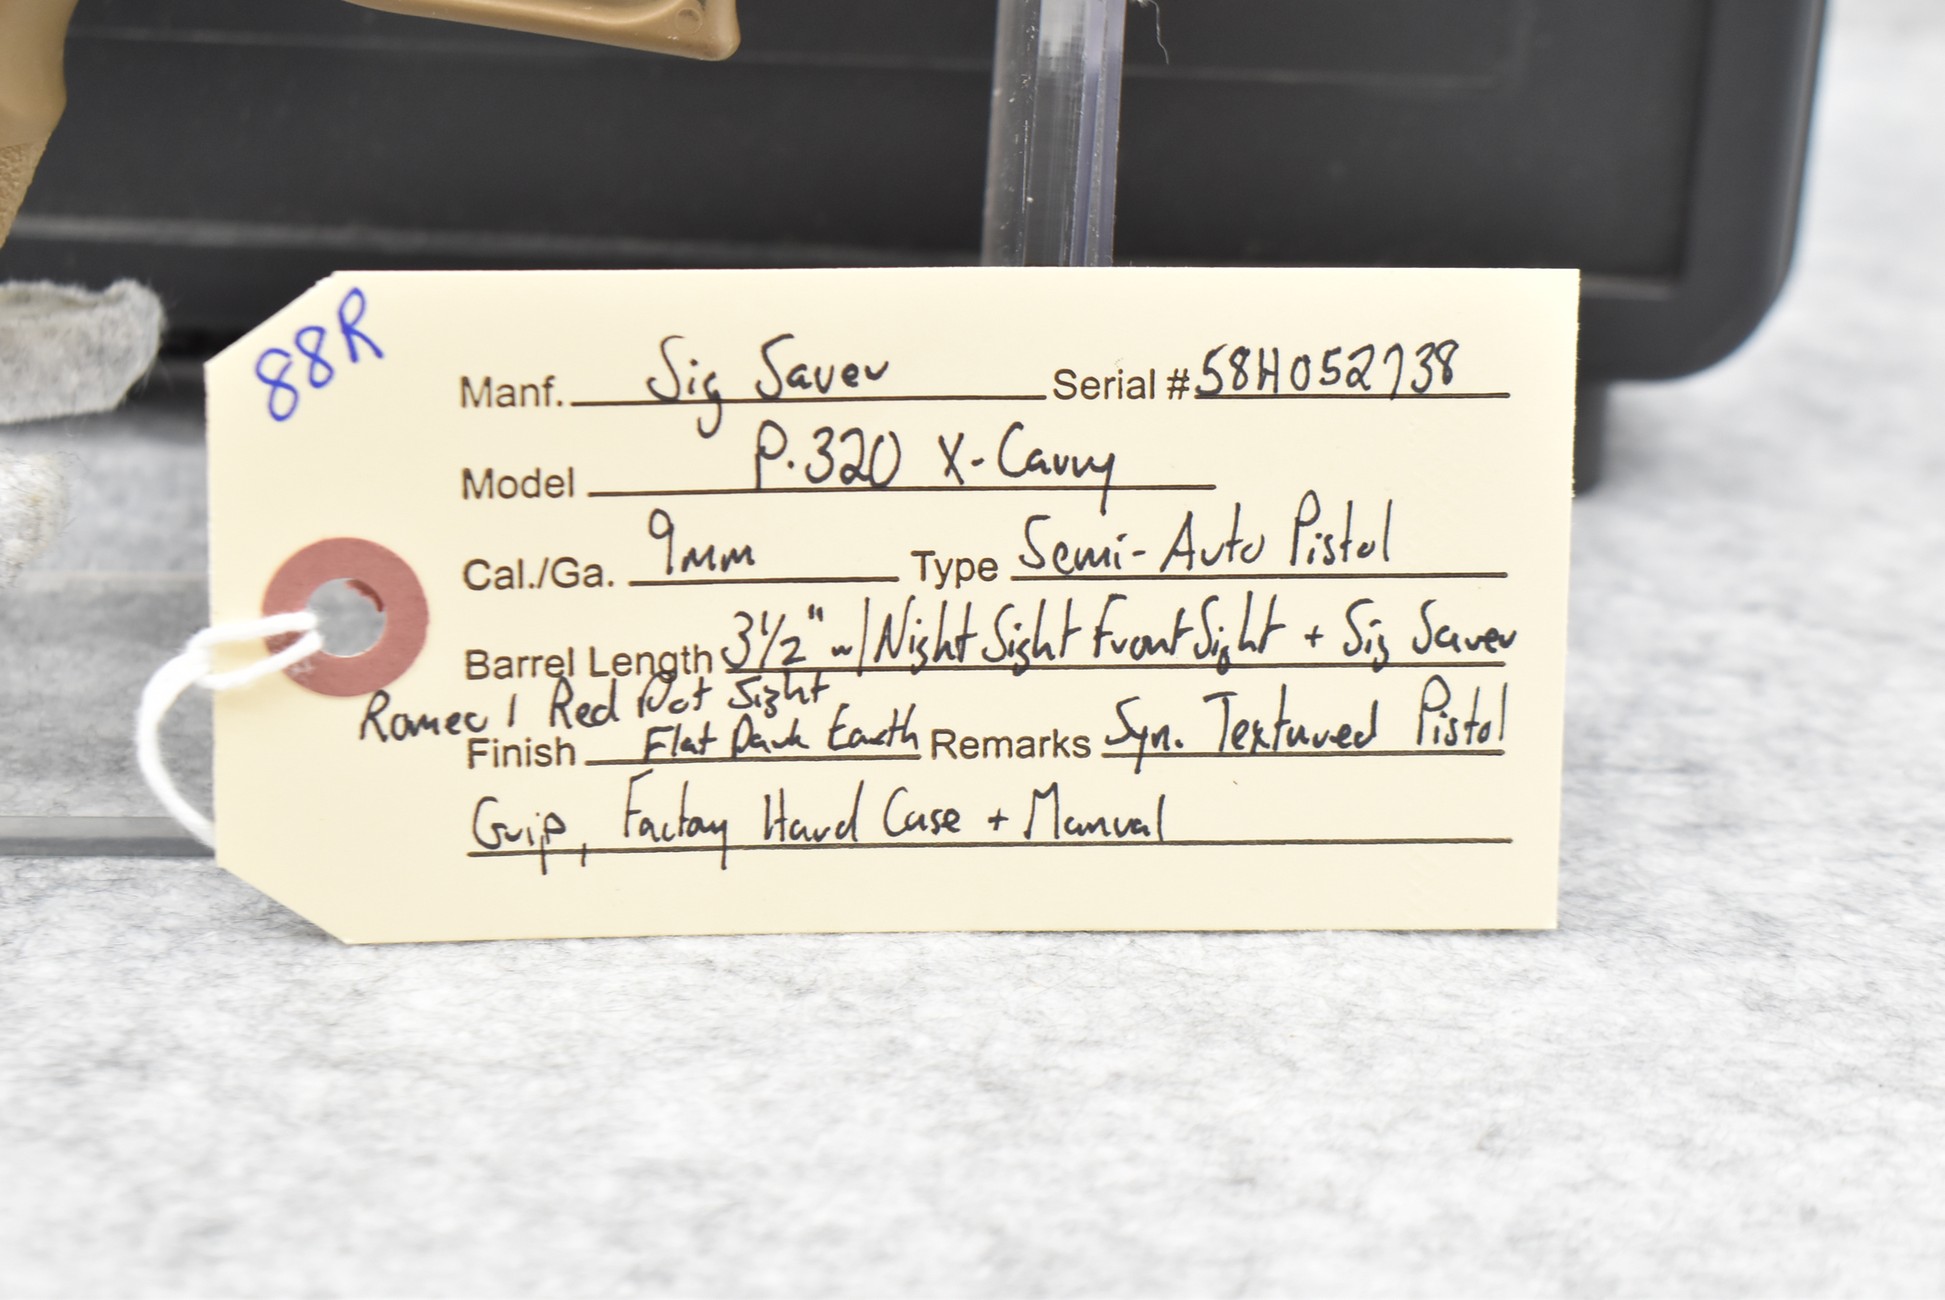 88R
Manf. Sig Sauer Serial # 58H052738
Model P.320 X-Carry
Cal./Ga. 9mm Type Semi-Auto Pistol
Barrel Length 3½" w/ Night Sight Front Sight + Sig Sauer
Romeo 1 Red Dot Sight
Finish Flat Dark Earth Remarks Syn. Textured Pistol
Grip, Factory Hard Case + Manual